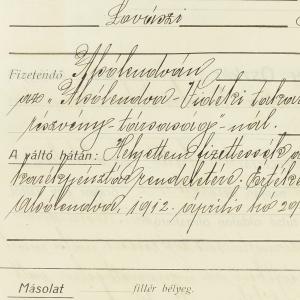 Lovászi
Fizetendő Alsólendván
az „Alsólendva-Vidéki takar
részvény-társaság"-nál.
A váltó hátán: Helyettem fizettessék a
takarékpénztár rendeletére. Értéke
Alsólendva, 1912. április hó 29
Másolat fillér bélyeg.